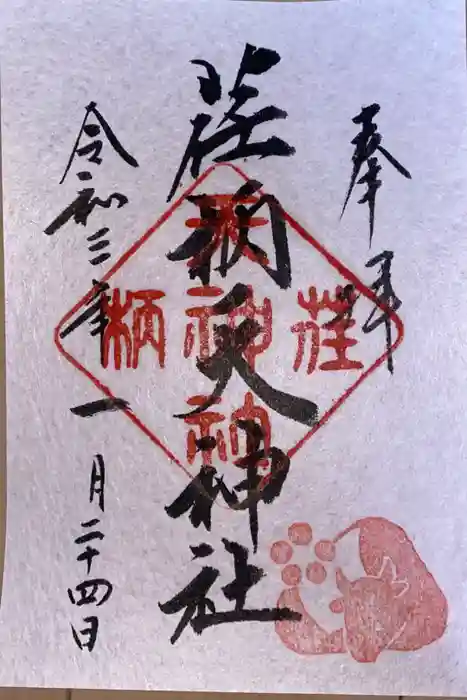 奉拝
荏柄天神社
令和三年一月二十四日
荏柄天神社